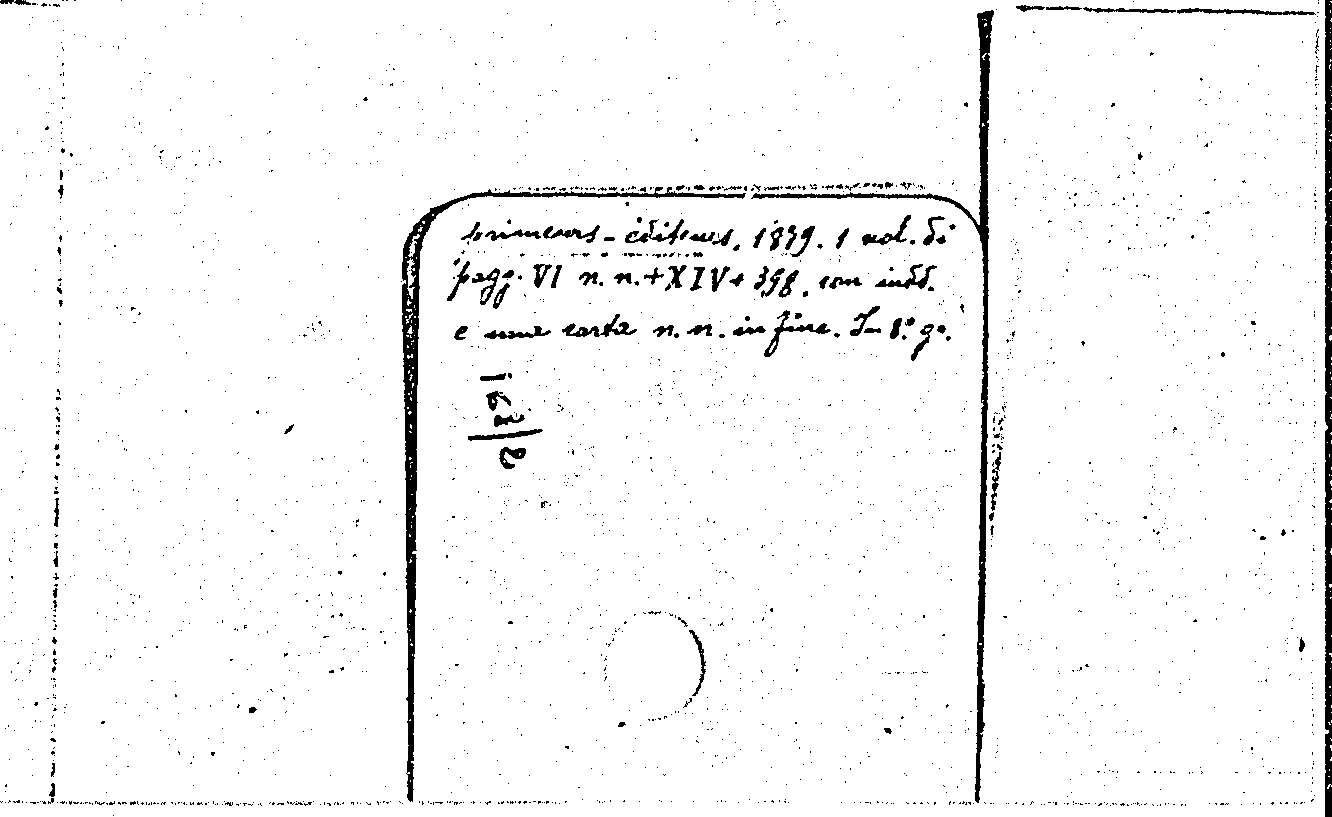 primeurs-éditeurs, 1879. 1 vol. di
pagg. VI n. n. + XIV + 398, con indd.
e una carta n. n. in fine. In 8.° g.°